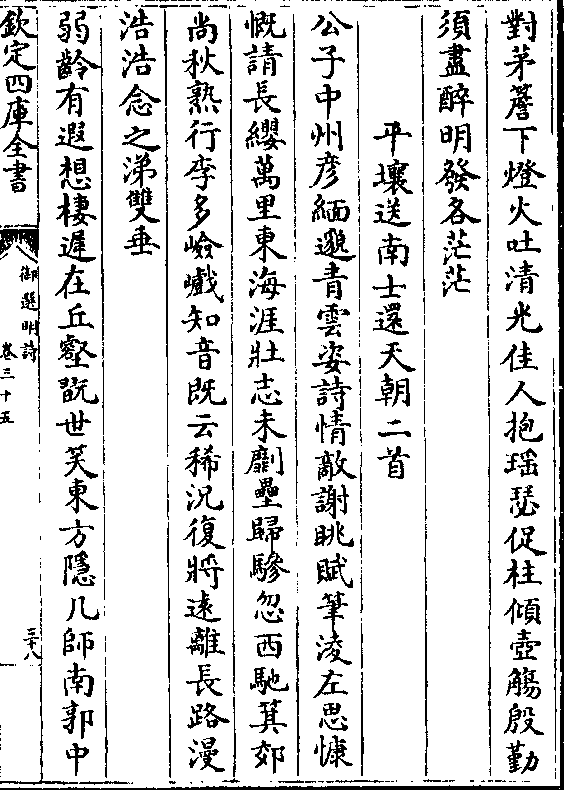 對茅簷下燈火吐清光佳人抱瑶瑟促柱傾壺觴殷勤
須盡醉明發各茫茫
平壤送南士還天朝二首
公子中州彦緬邈青雲姿詩情敵謝眺賦筆淩左思慷
慨請長纓萬里東海涯壯志未劘壘歸驂忽西馳箕郊
尚秋熟行李多嶮巇知音既云稀況復將遠離長路漫
浩浩念之涕雙垂
弱齡有遐想棲遲在丘壑翫世笑東方隱几師南郭中
欽定四庫全書
御選明詩
卷三十五
三十八